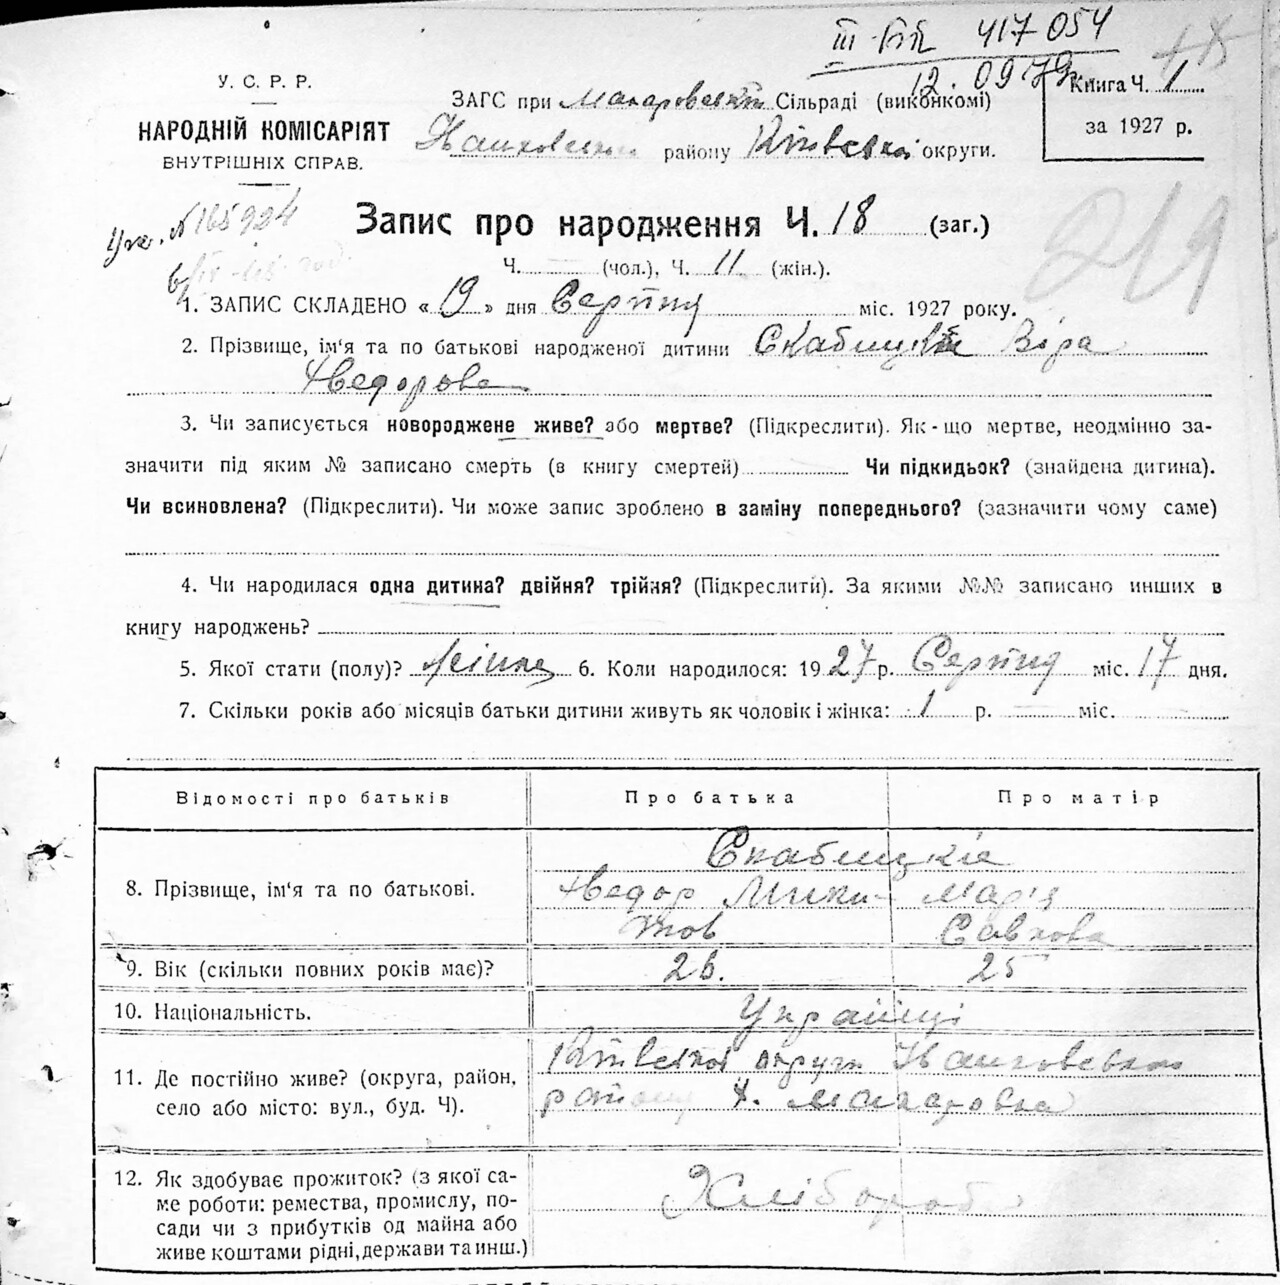 III-БК 417054
12.09.79
У. С. Р. Р.
НАРОДНІЙ КОМІСАРІЯТ
ВНУТРІШНІХ СПРАВ.
ЗАГС при Макаровській Сільраді (виконкомі)
району Київської округи.
Книга Ч. 1
за 1927 р.
№165924
219
Запис про народження Ч. 18 (заг.)
Ч. — (чол.), Ч. 11 (жін.).
1. ЗАПИС СКЛАДЕНО «19» дня Серпня міс. 1927 року.
2. Прізвище, ім‘я та по батькові народженої дитини Скабицька Віра
Хведорова
3. Чи записується новороджене живе? або мертве? (Підкреслити). Як-що мертве, неодмінно за-
значити під яким № записано смерть (в книгу смертей) Чи підкидьок? (знайдена дитина).
Чи всиновлена? (Підкреслити). Чи може запис зроблено в заміну попереднього? (зазначити чому саме)
4. Чи народилася одна дитина? двійня? трійня? (Підкреслити). За якими №№ записано инших в
книгу народжень?
5. Якої стати (полу)? жіноча 6. Коли народилося: 1927 р. Серпня міс. 17 дня.
7. Скільки років або місяців батьки дитини живуть як чоловік і жінка: 1 р. — міс.
Відомості про батьків Про батька Про матір
Скабицкіе
8. Прізвище, ім‘я та по батькові. Хведор Мики- Марія
тов Савкова
9. Вік (скільки повних років має)? 26. 25
10. Національність. Українці
Київської округи
11. Де постійно живе? (округа, район,
село або місто: вул., буд. Ч). району Макаровка
12. Як здобуває прожиток? (з якої са-
ме роботи: ремества, промислу, по- Хлібороб
сади чи з прибутків од майна або
живе коштами рідні, держави та инш.)